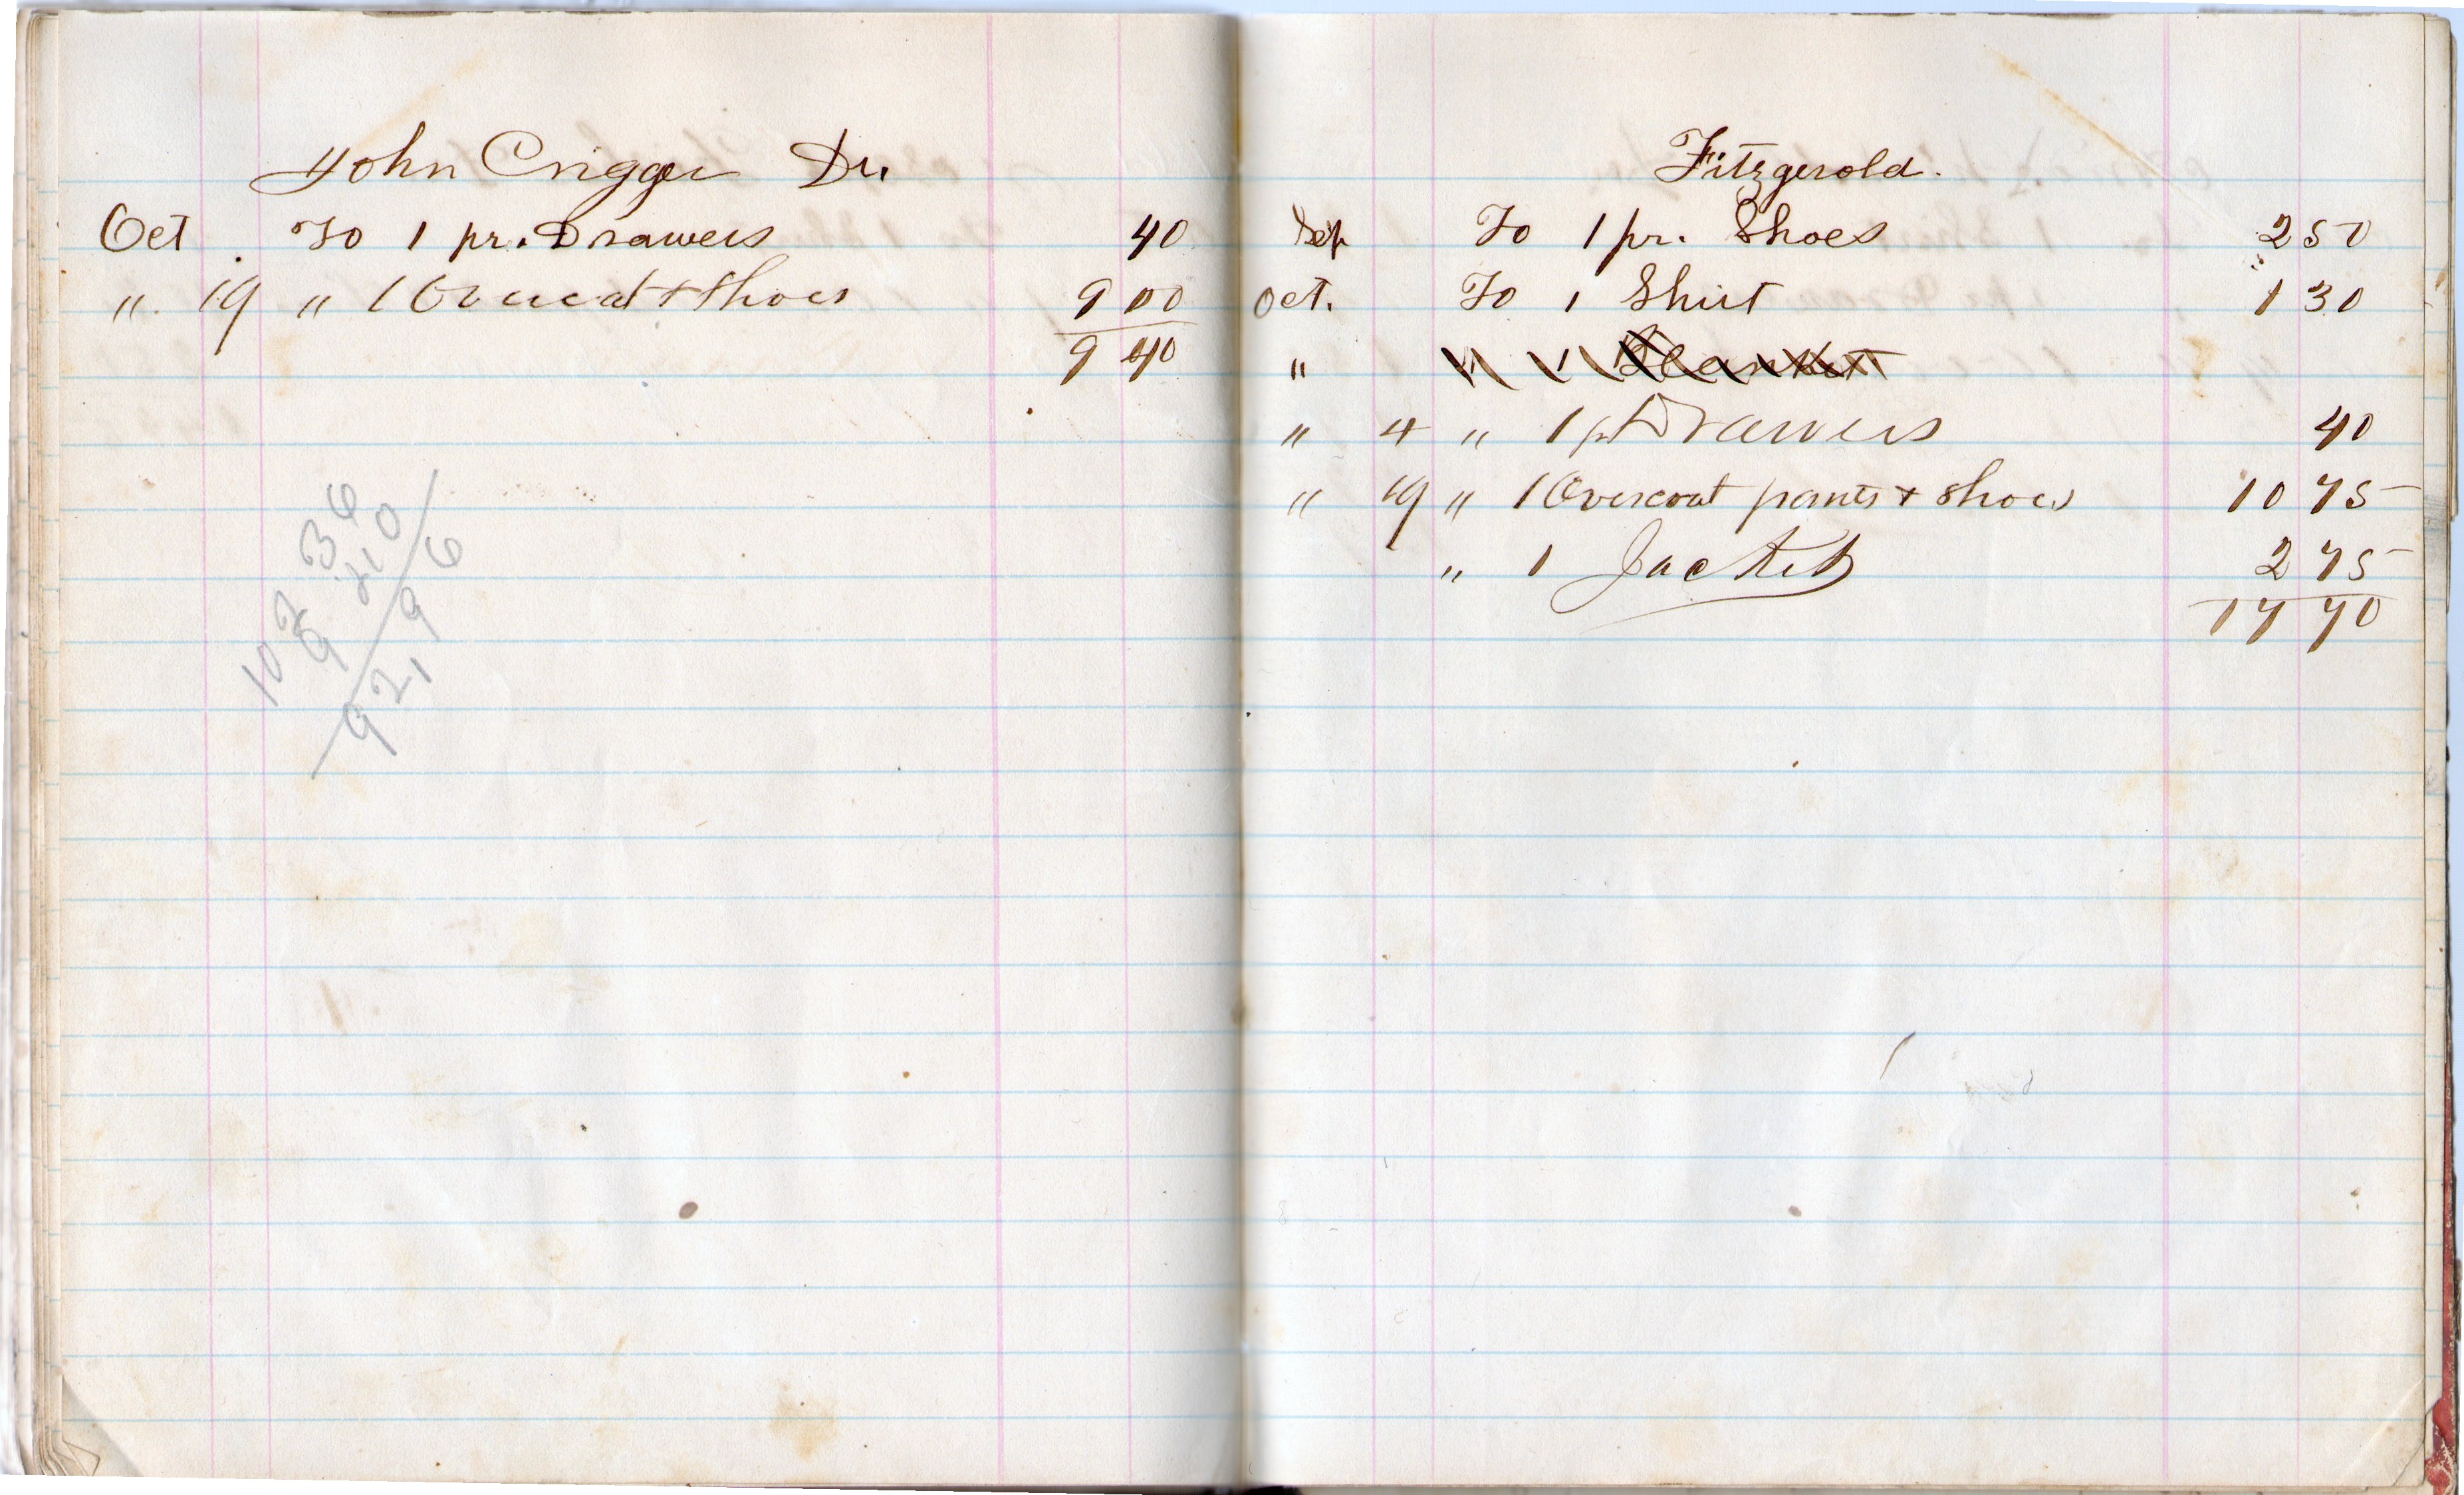 John Crigger Dr.
Oct To 1 pr. Drawers 40
" 19 " 1 Overcoat + Shoes 9 00
9 40
36
40
96
Fitzgerold.
Sep To 1 pr. Shoes 2 50
Oct. To 1 Shirt 1 30
" " 1 Blankett
" 4 " 1 pr Drawers 40
" 19 " 1 Overcoat pants + shoes 10 75
" 1 Jacket 2 75
17 70